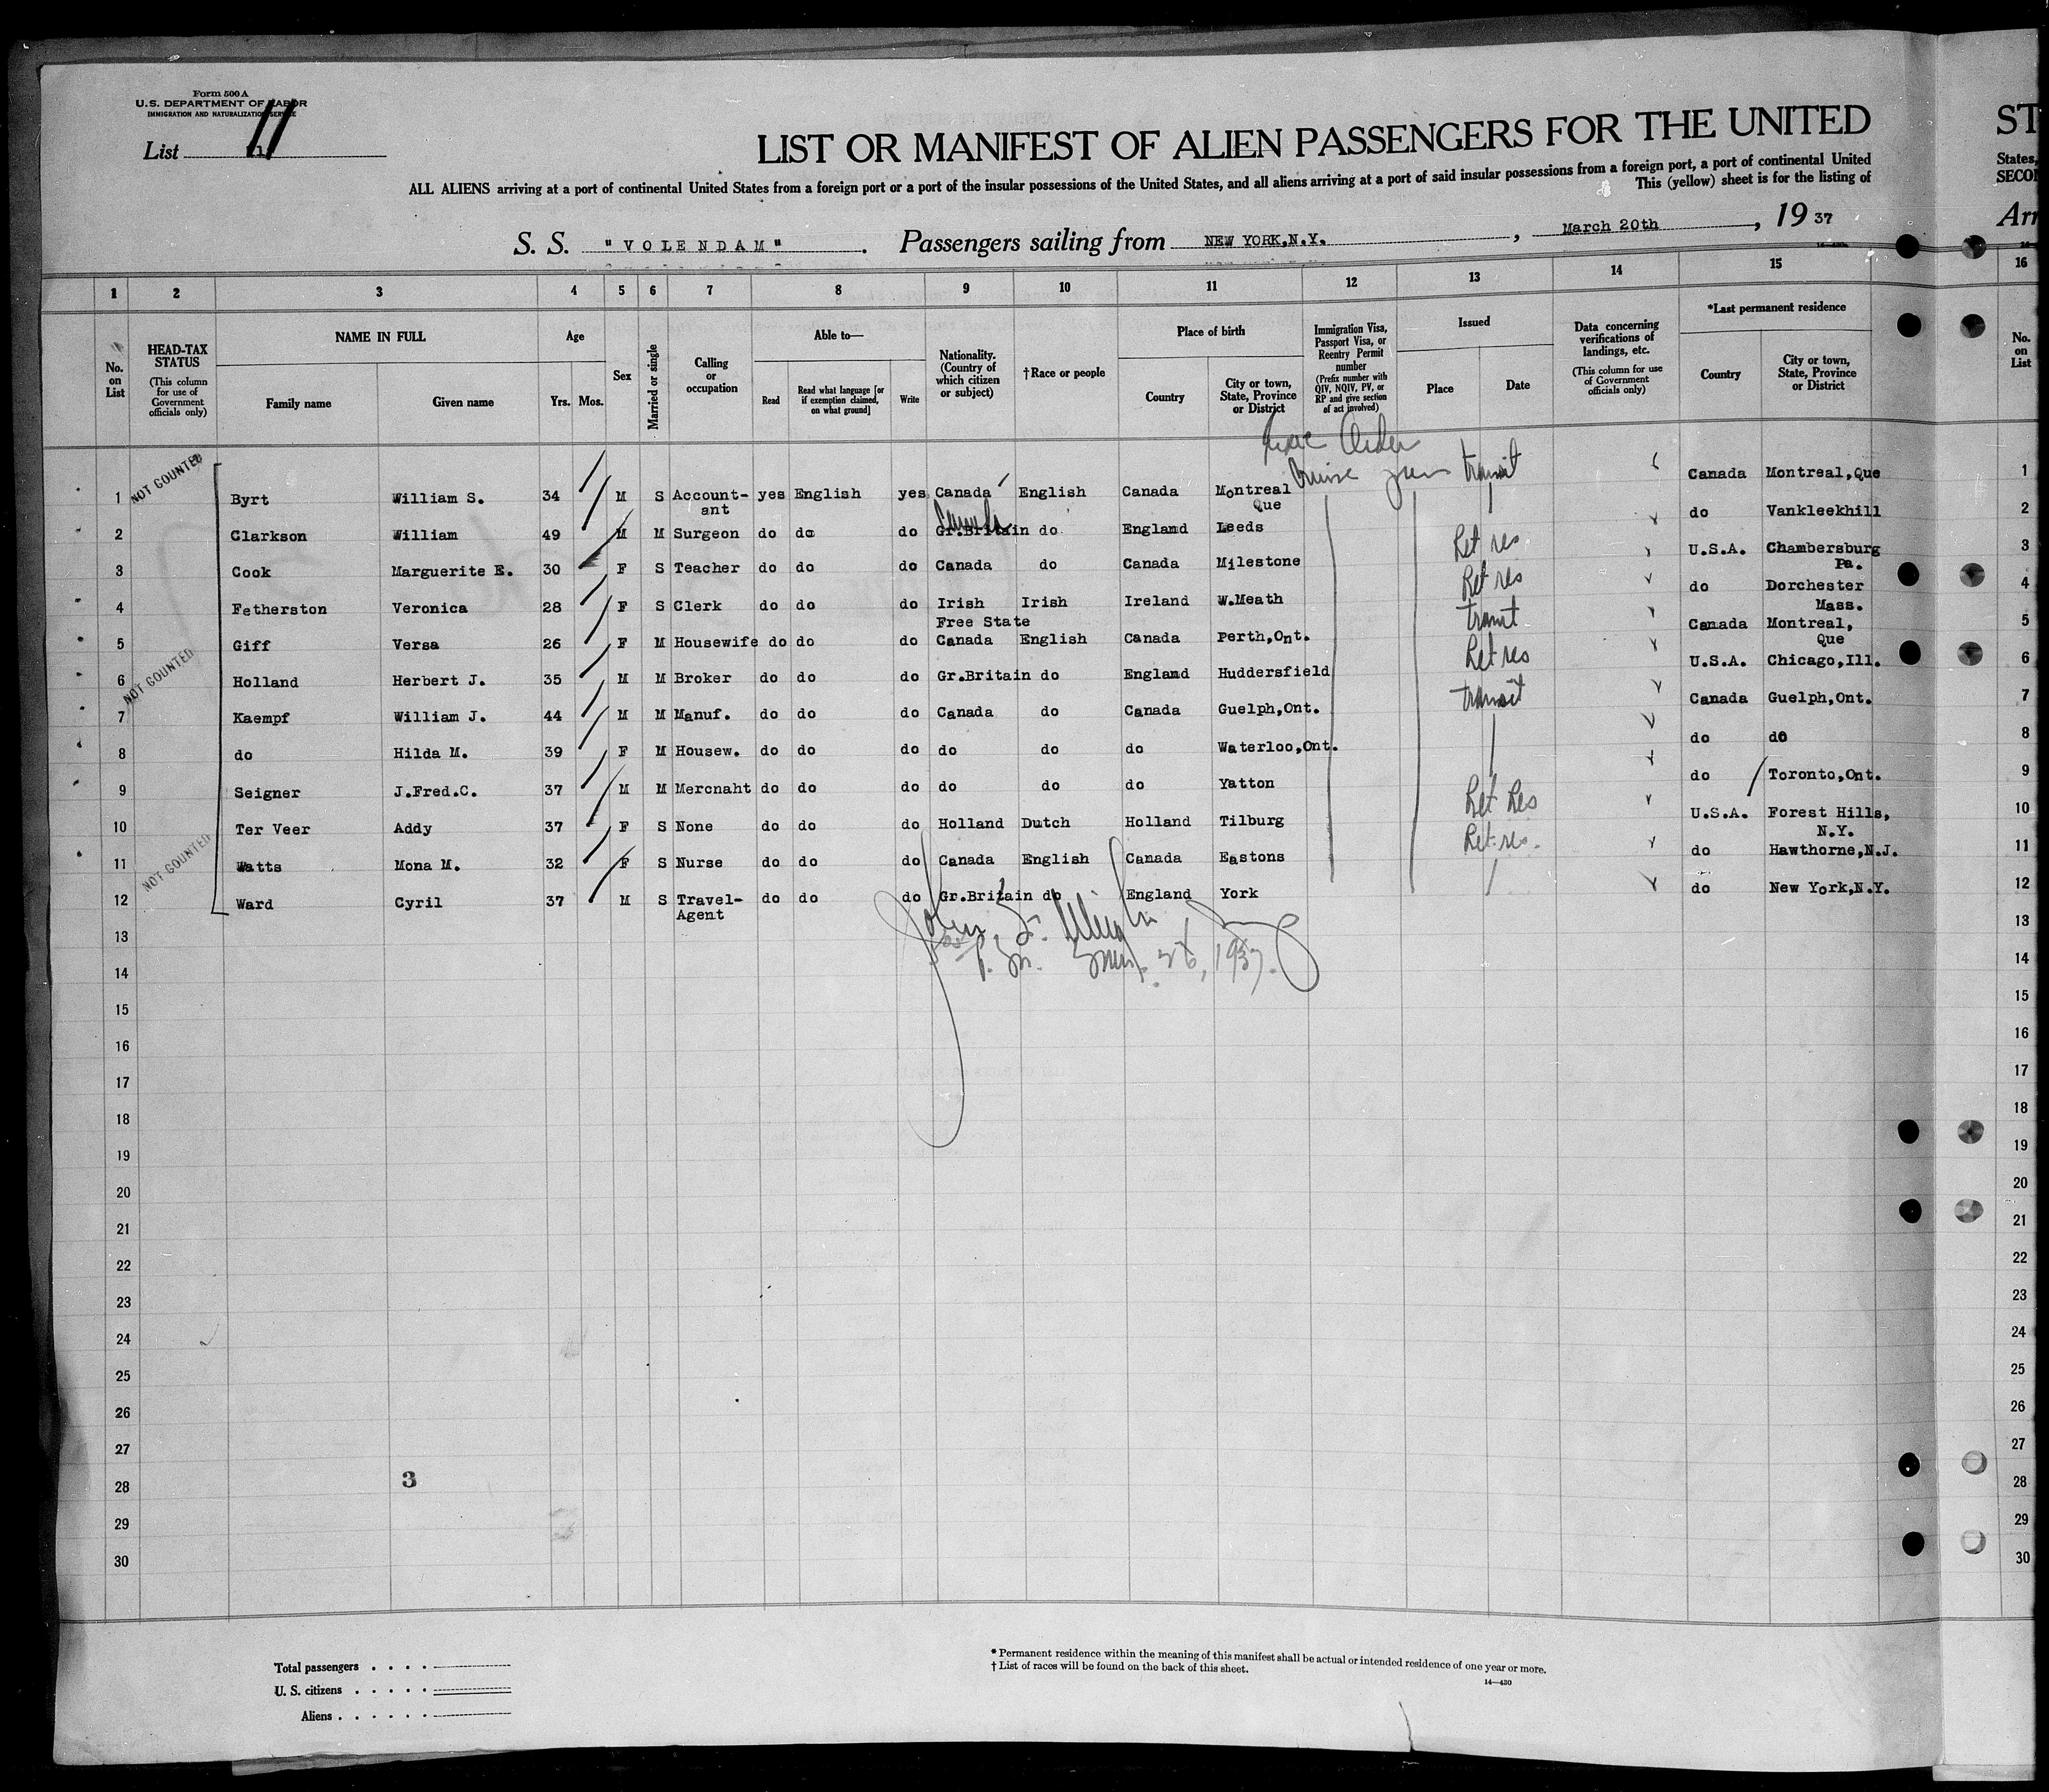 Form 500 A
U.S. DEPARTMENT OF LABOR
IMMIGRATION AND NATURALIZATION SERVICE
List 11
LIST OR MANIFEST OF ALIEN PASSENGERS FOR THE UNITED
ST
ALL ALIENS arriving at a port of continental United States from a foreign port or a port of the insular possessions of the United States, and all aliens arriving at a port of said insular possessions from a foreign port, a port of continental United
States,
This (yellow) sheet is for the listing of
SECO
S. S. "VOLENDAM". Passengers sailing from NEW YORK,N.Y., March 20th, 19 37
Arr
1 2 3 4 5 6 7 8 9 10 11 12 13 14 15 16
No. on List
HEAD-TAX STATUS (This column for use of Government officials only)
NAME IN FULL
Family name Given name
Age
Yrs. Mos.
Sex
Married or single
Calling or occupation
Able to—
Read Read what language [or if exemption claimed, on what ground] Write
Nationality. (Country of which citizen or subject)
†Race or people
Place of birth
Country City or town, State, Province or District
Immigration Visa, Passport Visa, or Reentry Permit number (Prefix number with QIV, NQIV, PV, or RP and give section of act involved)
Issued
Place Date
Data concerning verifications of landings, etc. (This column for use of Government officials only)
*Last permanent residence
Country City or town, State, Province or District
No. on List
Order
NOT COUNTED
1 Byrt William S. 34 M S Account-ant yes English yes Canada English Canada Montreal Que transit Canada Montreal,Que 1
2 Clarkson William 49 M M Surgeon do do do Canada Gr.Britain do England Leeds do Vankleekhill 2
3 Cook Marguerite E. 30 F S Teacher do do do Canada do Canada Milestone Ret res U.S.A. Chambersburg Pa. 3
4 Fetherston Veronica 28 F S Clerk do do do Irish Free State Irish Ireland W.Meath Ret res do Dorchester Mass. 4
5 Giff Versa 26 F M Housewife do do do Canada English Canada Perth,Ont. transit Canada Montreal, Que 5
NOT COUNTED
6 Holland Herbert J. 35 M M Broker do do do Gr.Britain do England Huddersfield Ret res U.S.A. Chicago,Ill. 6
7 Kaempf William J. 44 M M Manuf. do do do Canada do Canada Guelph,Ont. transit Canada Guelph,Ont. 7
8 do Hilda M. 39 F M Housew. do do do do do do Waterloo,Ont. do do 8
9 Seigner J.Fred.C. 37 M M Mercnaht do do do do do do Yatton do Toronto,Ont. 9
10 Ter Veer Addy 37 F S None do do do Holland Dutch Holland Tilburg Ret Res U.S.A. Forest Hills, N.Y. 10
NOT COUNTED
11 Watts Mona M. 32 F S Nurse do do do Canada English Canada Eastons Ret res. do Hawthorne,N.J. 11
12 Ward Cyril 37 M S Travel-Agent do do do Gr.Britain do England York do New York,N.Y. 12
13 13
John 1937.
14 14
15 15
16 16
17 17
18 18
19 19
20 20
21 21
22 22
23 23
24 24
25 25
26 26
27 27
28 3 28
29 29
30 30
Total passengers . . . .
U. S. citizens . . . . .
Aliens . . . . . .
* Permanent residence within the meaning of this manifest shall be actual or intended residence of one year or more.
† List of races will be found on the back of this sheet.
14—430